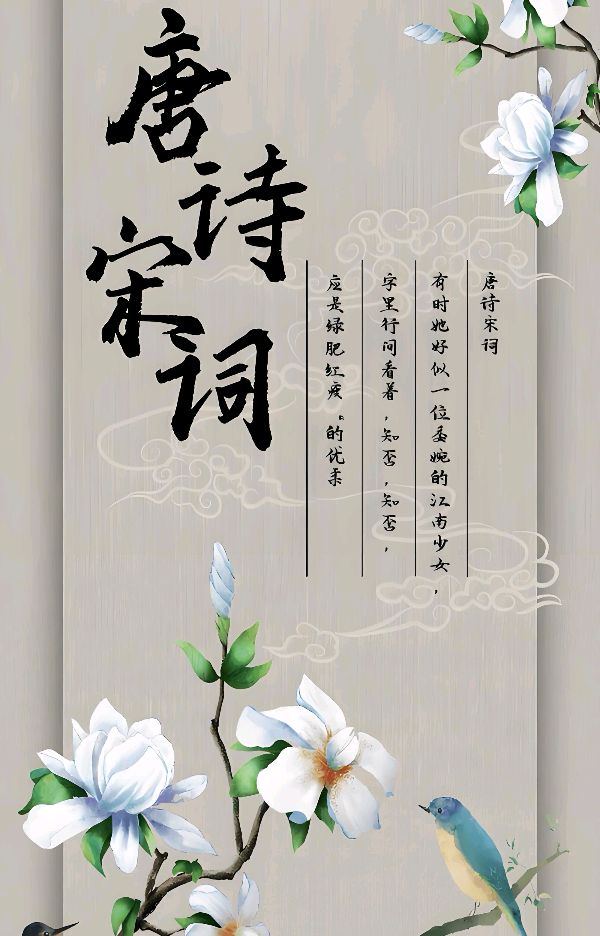 唐诗
宋词
唐诗宋词
有时她好似一位委婉的江南少女，
字里行间看着，知否，知否，
应是绿肥红瘦。的优柔